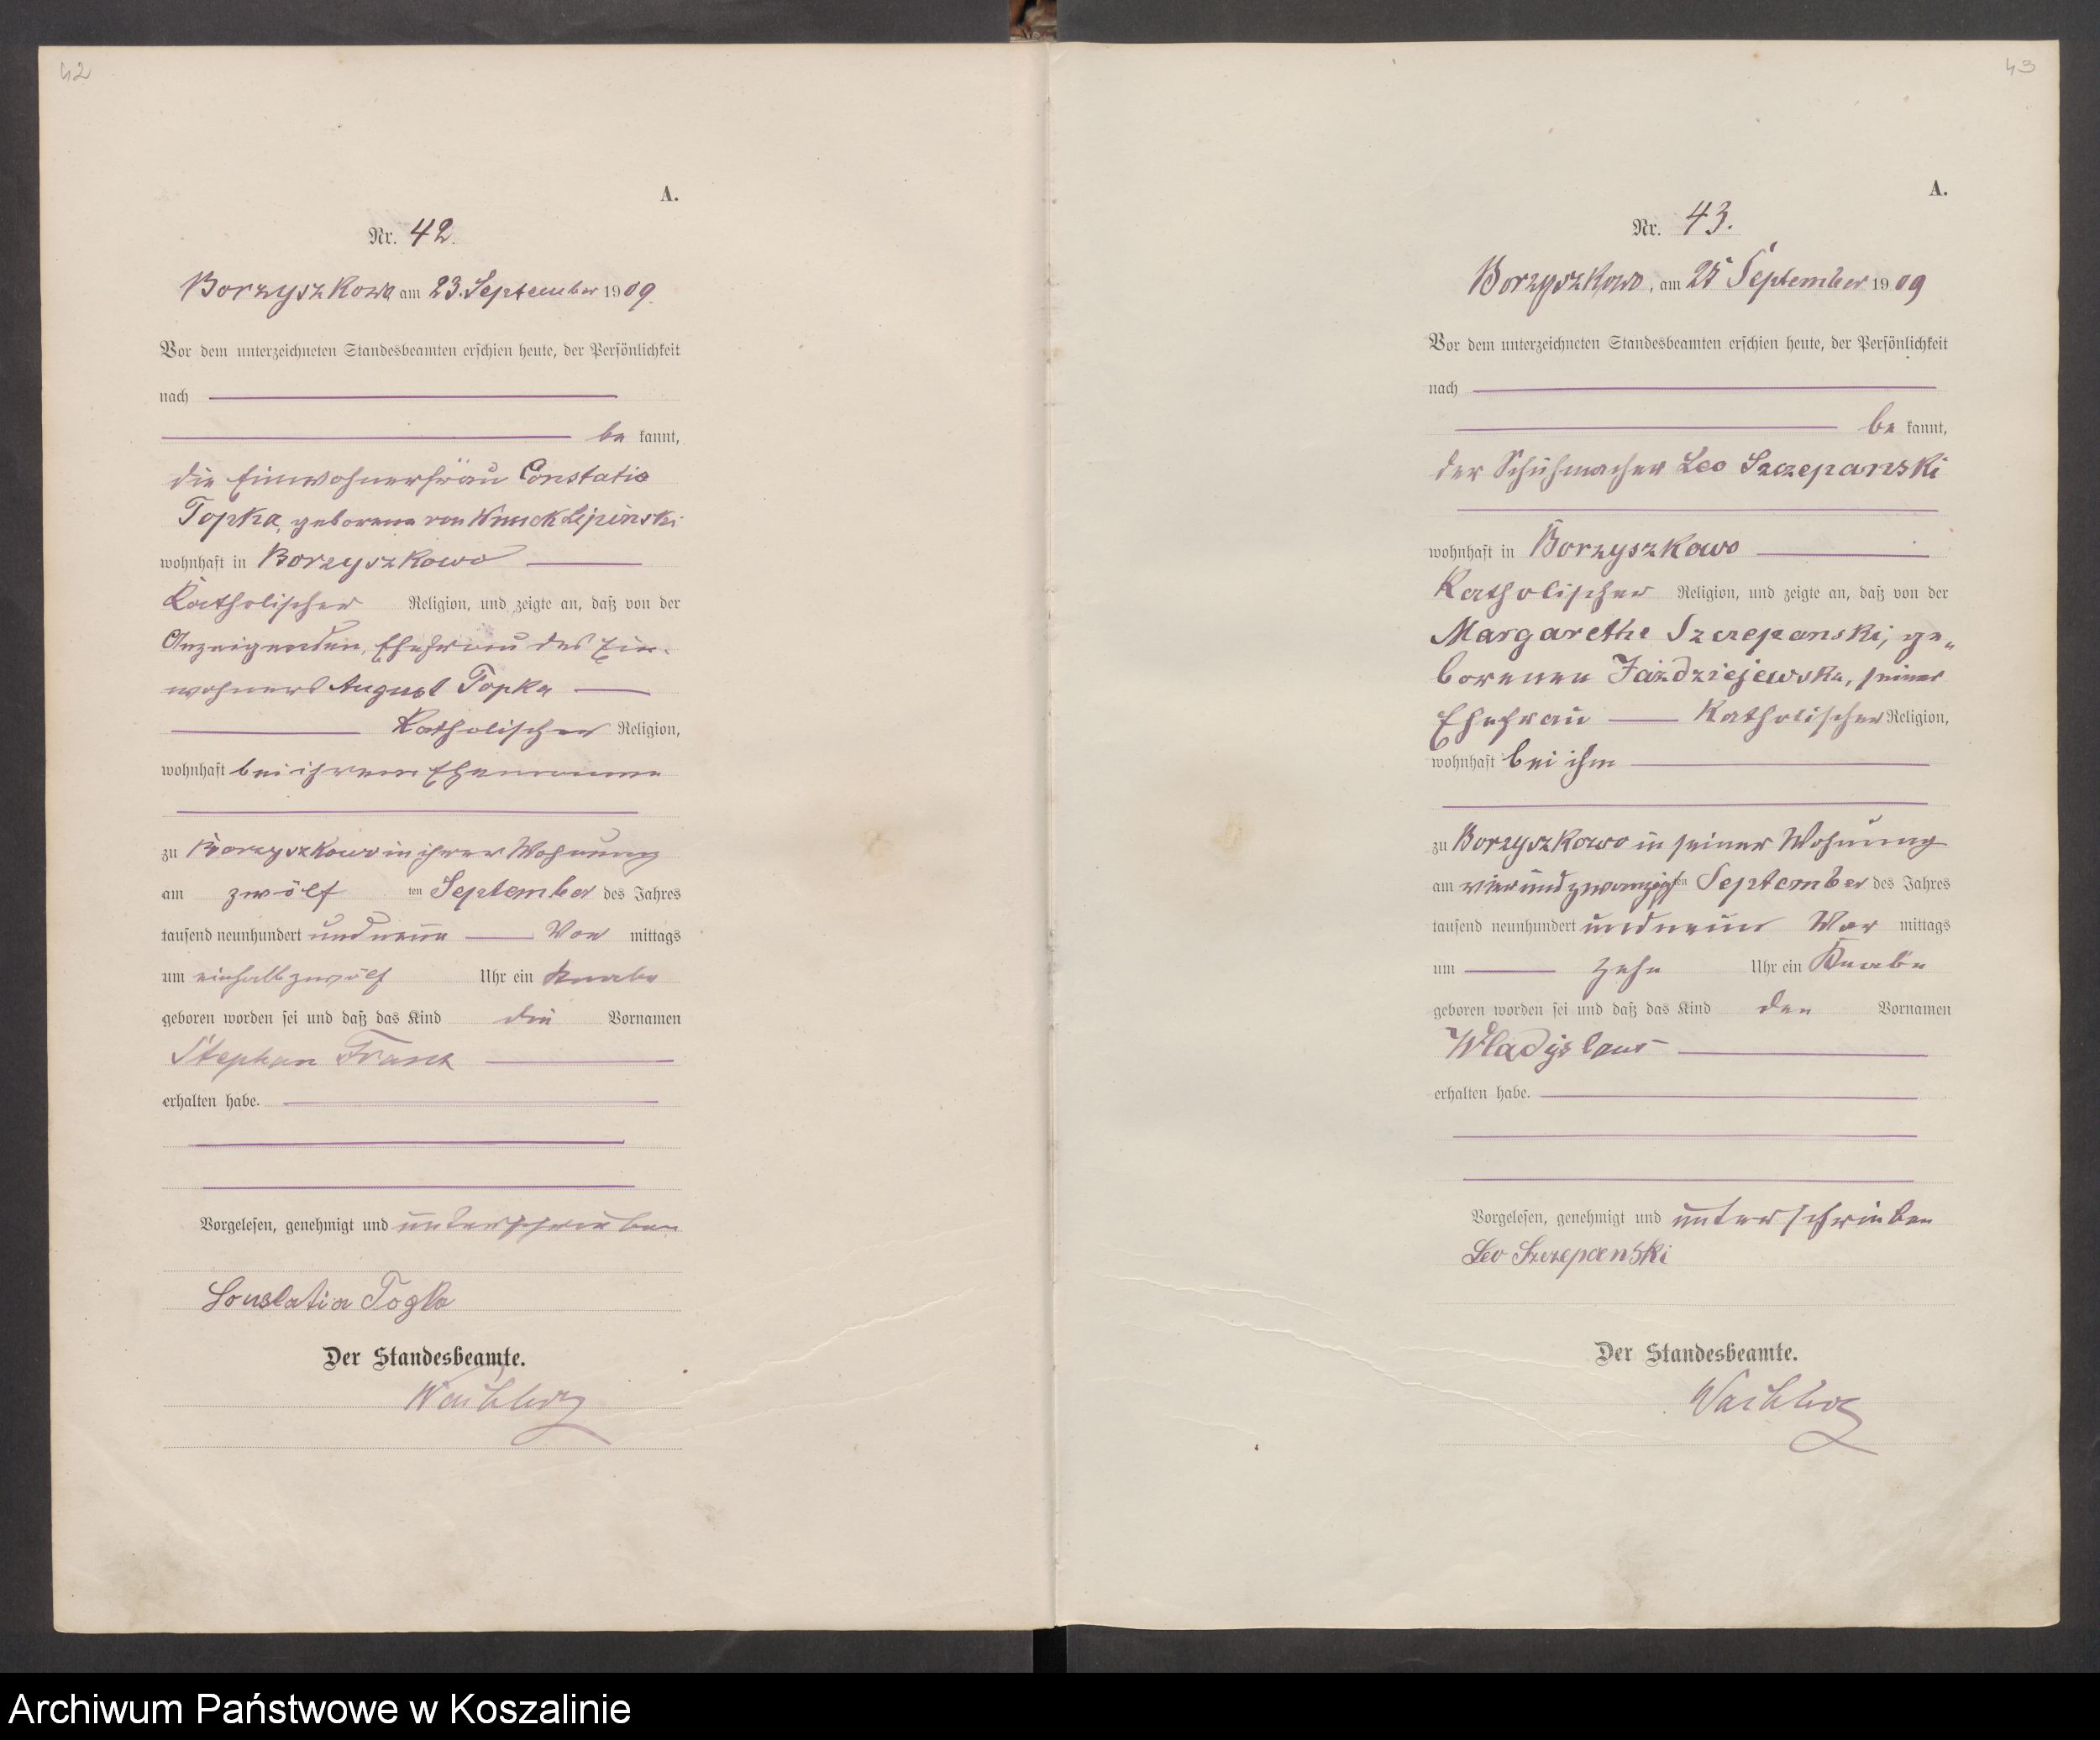 42
A.
Nr. 42.
Borzyszkowo am 23. September 1909.
Vor dem unterzeichneten Standesbeamten erschien heute, der Persönlichkeit
nach
be kannt,
die Einwohnerfrau Constatia
Topka, geborene von Wnuck Lipinski
wohnhaft in Borzyszkowo
Katholischer Religion, und zeigte an, daß von der
Anzeigenden, Ehefrau des Ein-
wohners August Topka
Katholischer Religion,
wohnhaft bei ihrem Ehemanne
zu Borzyszkowo in ihrer Wohnung
am zwölf ten September des Jahres
tausend neunhundert und neun Vor mittags
um einhalb zwölf Uhr ein Knabe
geboren worden sei und daß das Kind die Vornamen
Stephan Franz
erhalten habe.
Vorgelesen, genehmigt und unterschrieben
Constatia Topka
Der Standesbeamte.
43
A.
Nr. 43.
Borzyszkowo, am 25 September 1909
Vor dem unterzeichneten Standesbeamten erschien heute, der Persönlichkeit
nach
be kannt,
der Schuhmacher Leo Szczepanski
wohnhaft in Borzyszkowo
Katholischer Religion, und zeigte an, daß von der
Margarethe Szczepanski, ge-
borenen Jazdziejewska, seiner
Ehefrau Katholischer Religion,
wohnhaft bei ihm
zu Borzyszkowo in seiner Wohnung
am vierundzwanzigsten September des Jahres
tausend neunhundert und neun Vor mittags
um zehn Uhr ein Knabe
geboren worden sei und daß das Kind den Vornamen
Wladyslaus
erhalten habe.
Vorgelesen, genehmigt und unterschrieben
Leo Szczepanski
Der Standesbeamte.
Archiwum Państwowe w Koszalinie